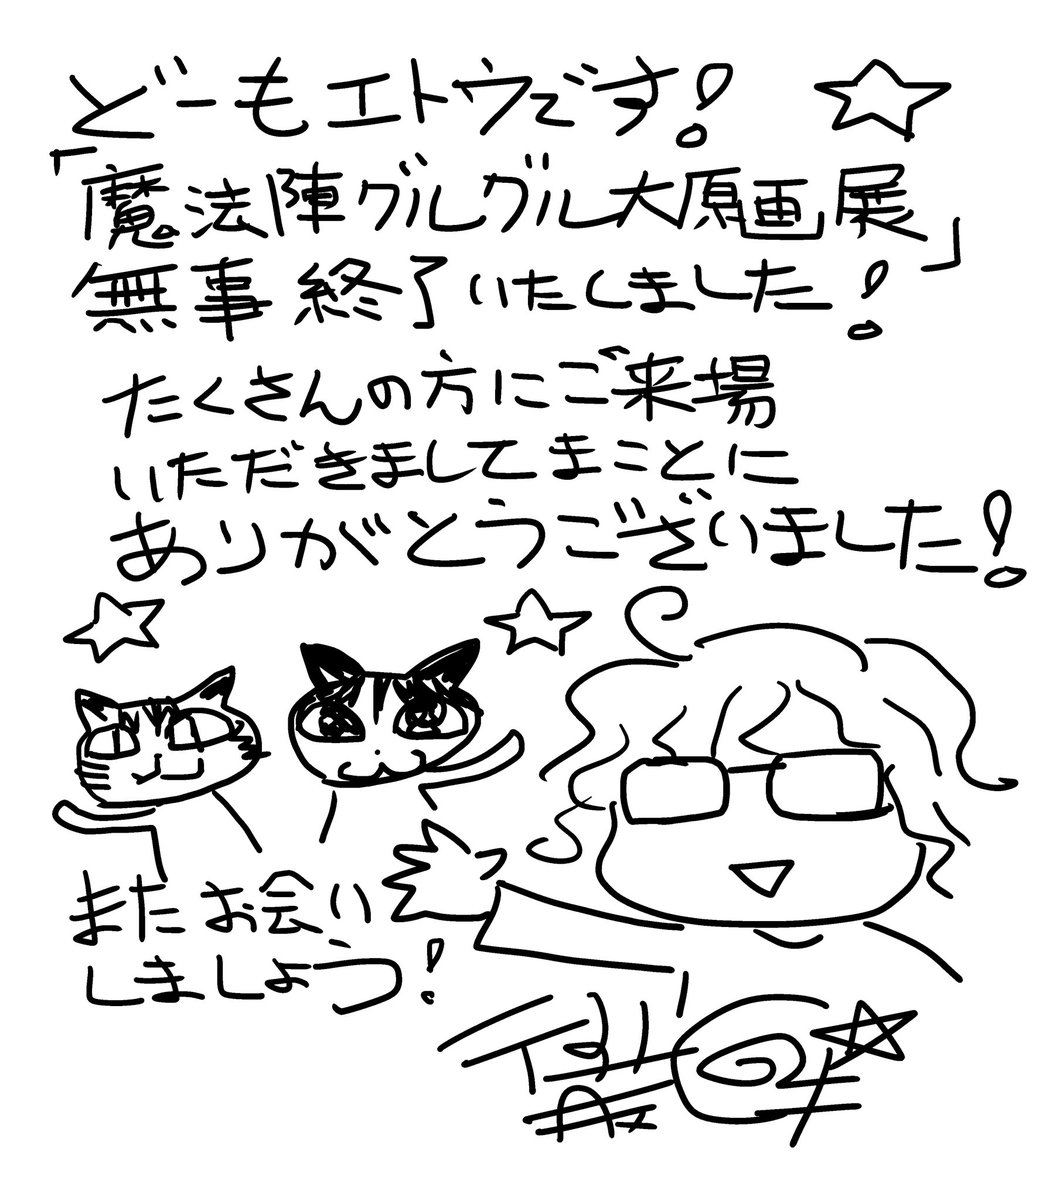 どーもエトウです!
「魔法陣グルグル大原画展」
無事終了いたしました!
たくさんの方にご来場
いただきましてまことに
ありがとうございました!
またお会い
しましょう!